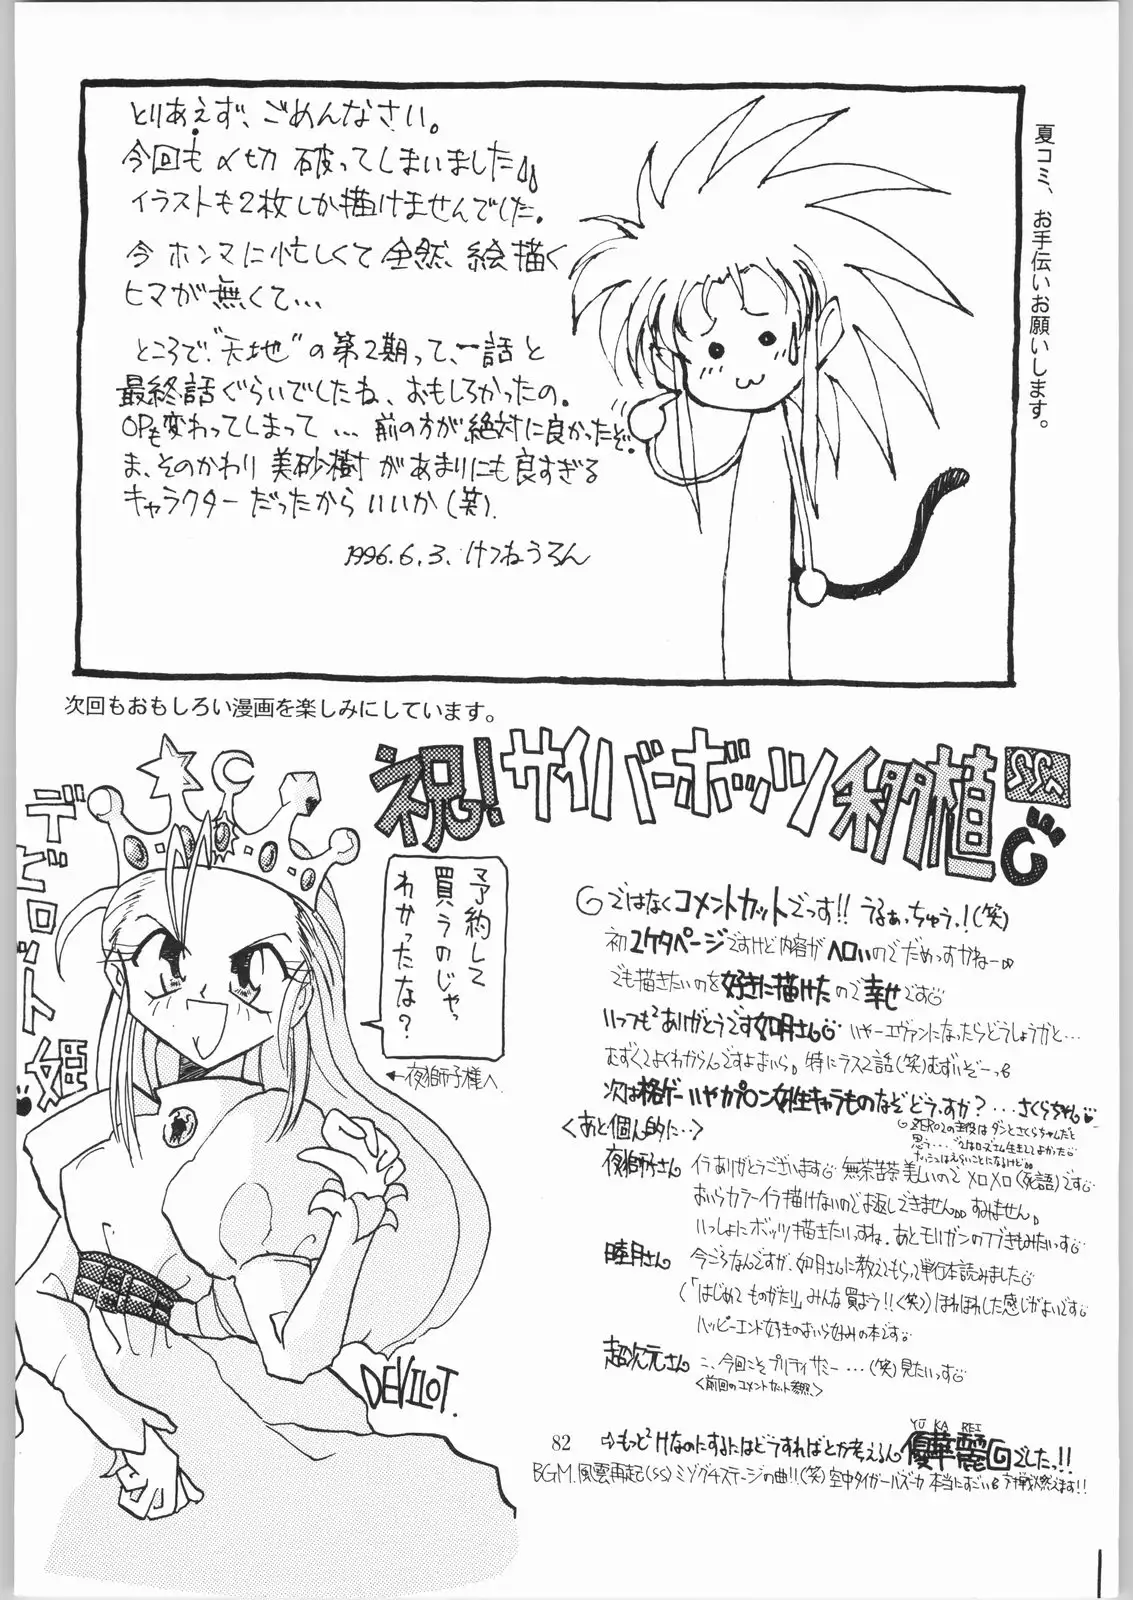 とりあえず、ごめんなさい。
今回も〆切 破ってしまいました
イラストも2枚しか描けませんでした。
今ホンマに忙しくて全然、絵描く
ヒマが無くて…
ところで、"天地"の第2期って、一話と
最終話ぐらいでしたね、おもしろかったの。
OPも変わってしまって…前の方が絶対に良かったぞ。
ま、そのかわり美砂樹があまりにも良すぎる
キャラクターだったからいいか(笑).
1996.6.3. けつねうろん
夏コミ、お手伝いお願いします。
次回もおもしろい漫画を楽しみにしています。
祝!サイバーボッツ移植
SS
デビロット姫
予約して
買うのじゃっ
わかったな?
←夜獅子様へ
DEVILOT.
ではなくコメントカットでっす!! うるぁっちゅう!(笑)
初2ケタページですけど内容がヘロいのでだめっすかねー
でも描きたいのを好きに描けたので幸せです
いっつもありがとうです如月さん いやーエヴァンになったらどうしようかと…
むずくてよくわからんですよおいら。特にラス2話(笑)むずいぞーっ
次は格ゲーいやカプコン女性キャラものなぞどうすか?…さくらちゃん
ZERO2の主役はダンとさくらちゃんだと
思う....
<あと個人的に…>
夜獅子さん イラありがとうございます 無茶苦茶美しいのでメロメロ(死語)です
おいらカラーイラ描けないのでお返しできません すみません。
いっしょにボッツ描きたいっすね。あとモリガンの
睦月さん 今ごろなんですが、如月さんに教えてもらって単行本読みました
(「はじめてものがたり」みんな買よう!!(笑))ほわほわした感じがよいです
ハッピーエンド好きのおいら好みの本です
超次元さん こ、今回こそプリティサミー…(笑)見たいっす
<前回のコメントカット参照>
82
⇨もっとHなのにするにはどうすればとか考えるん
YU KA REI
優華麗でしたっ!!
BGM.風雲再起(SS)ミヅグチステージの曲!!(笑)空中タイガーバズーカ本当にすごい 対戦燃えます!!